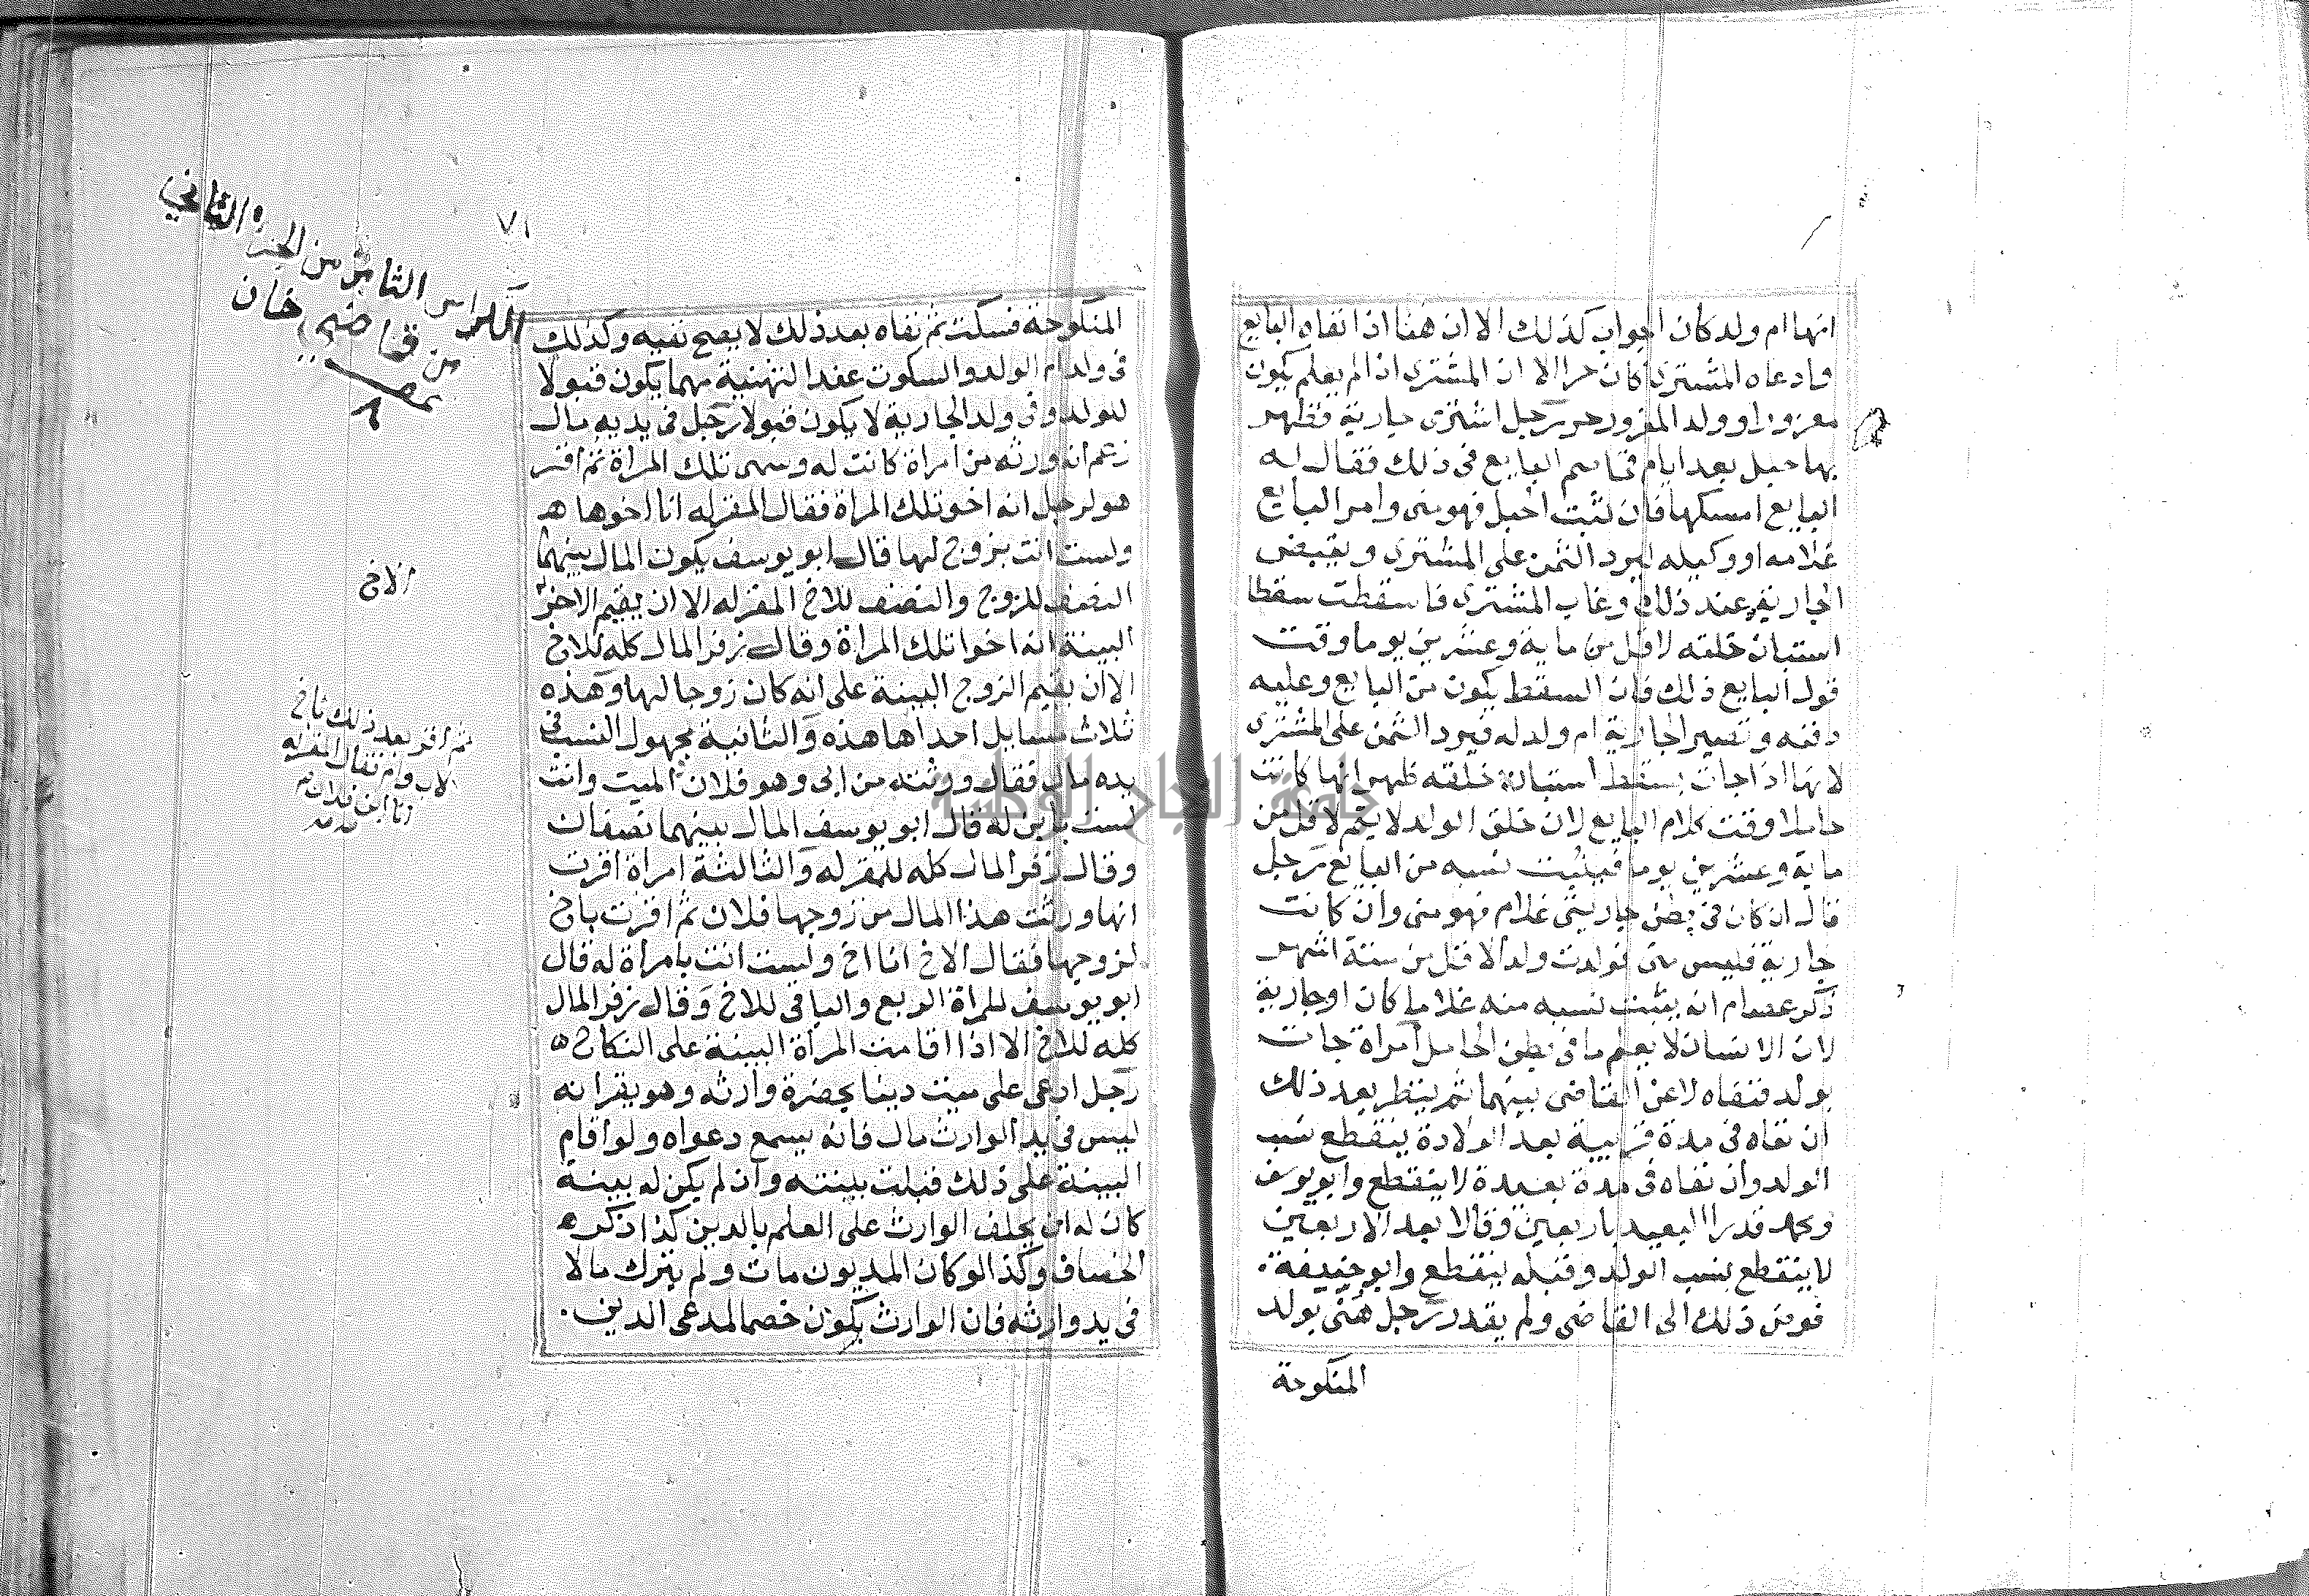 انها ام ولد كان الجواب كذلك الا ان هنا اذا نفاه البايع
وادعاه المشتري كان حرا الا ان المشترى اذا لم يعلم يكون
مغرورا وولد المغرور حر رجل اشترى جارية فظهر
بها حبل بعد ايام فخاصم البايع فى ذلك فقال له
البايع امسكها فان ثبت الحبل فهو منى وامر البايع
غلامه او وكيله ليرد الثمن على المشترى ويقبض
الجارية عند ذلك وغاب المشترى فاسقطت سقطا
استبان خلقه لاقل من ماية وعشرين يوما وقت
قول البايع ذلك فان السقط يكون من البايع وعليه
دفنه وتصير الجارية ام ولد له فيرد الثمن على المشترى
لانها اذا جات بسقط استبان خلقه ظهر انها كانت
حاملا وقت كلام البايع لان خلق الولد لا يتم لاقل من
ماية وعشرين يوما فيثبت نسبه من البايع رجل
قال ان كان فى بطن جاريتى غلام فهو منى وان كانت
جارية فليس منى فولدت ولدا لاقل من ستة اشهر
ذكر عصام انه يثبت نسبه منه غلاما كان او جارية
لان الانسان لا يعلم ما فى بطن الحامل امراة جات
بولد فنفاه لاعن القاضى بينهما ثم ينظر بعد ذلك
ان نفاه فى مدة قريبة بعد الولادة ينقطع نسب
الولد وان نفاه فى مدة بعيدة لا ينقطع وابو يوسف
ومحمد قدرا البعيد باربعين وقالا بعد الاربعين
لا ينقطع نسب الولد وقبله ينقطع وابو حنيفة
فوض ذلك الى القاضى ولم يقدر رجل هنى بولد
المنكوحة
٧١
المنكوحة فسكت ثم نفاه بعد ذلك لا يصح نفيه وكذلك
فى ولد ام الولد والسكوت عند التهنية مهما يكون قبولا
للولد وفى ولد الجارية لا يكون قبولا رجل فى يديه مال
زعم انه ورثه من امراة كانت له وسمى تلك المراة ثم اقر
هو لرجل انه اخو تلك المراة فقال المقر له انا اخوها
ولست انت بزوج لها قال ابو يوسف يكون المال بينهما
النصف للزوج والنصف للاخ المقر له الا ان يقيم الاخر
البينة انه اخو تلك المراة وقال زفر المال كله للاخ
الا ان يقيم الزوج البينة على انه كان زوجا لها وهذه
ثلاث مسايل احداها هذه والثانية مجهول النسب فى
يده مال فقال ورثته من ابى وهو فلان الميت وانت
لست بابن له قال ابو يوسف المال بينهما نصفان
وقال زفر المال كله للمقر له والثالثة امراة اقرت
انها ورثت هذا المال من زوجها فلان ثم اقرت باخ
لزوجها فقال الاخ انا اخ ولست انت بامراة له قال
ابو يوسف للمراة الربع والباقى للاخ وقال زفر المال
كله للاخ الا اذا اقامت المراة البينة على النكاح
رجل ادعى على ميت دينا بحضرة وارثه وهو يقر انه
ليس فى يد الوارث مال فانه يسمع دعواه ولو اقام
البينة على ذلك قبلت بينته وان لم يكن له بينة
كان له ان يحلف الوارث على العلم بالدين كذا ذكره
الخصاف وكذا لو كان المديون مات ولم يترك مالا
فى يد وارثه فان الوارث يكون خصما لمدعى الدين
الكراس الثامن من الجزء الثاني
من قاضي خان
الاخ
ثم اقر بعد ذلك باخ
الاب وام فقال المقر له
انا ابن فلان
جامعة النجاح الوطنية